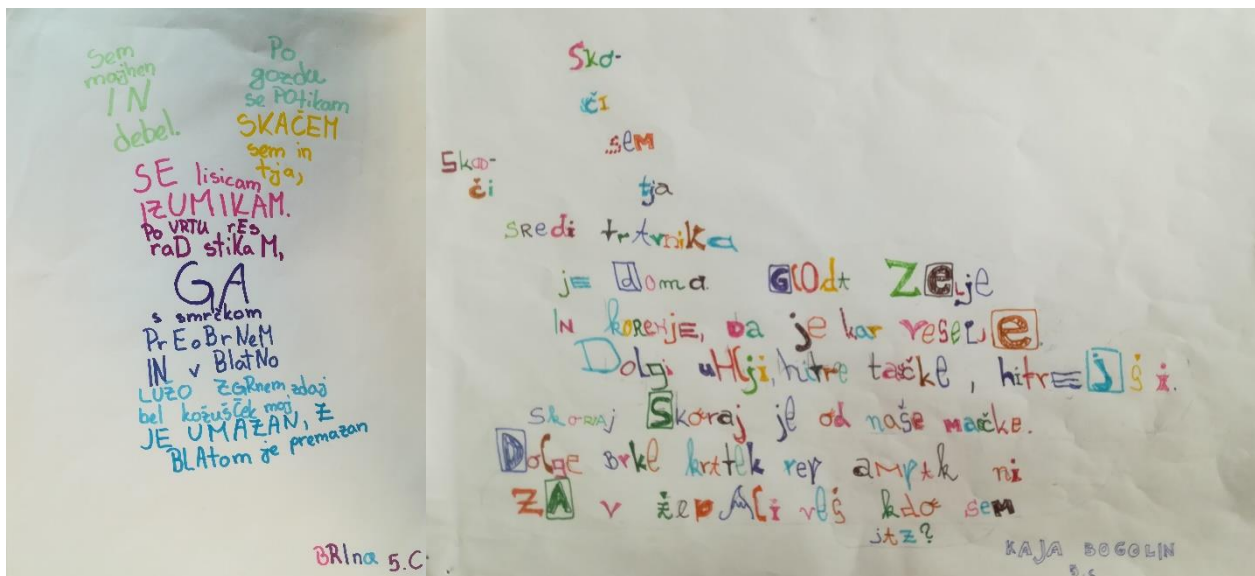 Sem
majhen
IN
debel.
Po
gozdu
se POtikam
SKAČEM
sem in
tja,
SE lisicam
IZUMIKAM.
Po VRTU rEs
raD stikaM,
GA
s smrčkom
PrEoBrNeM
IN v BlatNo
LUŽO ZGRnem zdaj
bel kožušček moj
JE UMAZAN, Z
BLAtom je premazan
BRIna 5.C
Sko-
čI
sem
Sko-
či
tja
SRedi trAvnika
jE doma. GlOdA ZElje
IN koRENjE, DA je kar veselE.
Dolgi uHlji, hitre tačke, hitrEjši
SkoRAj Skoraj je od naše mačke.
Dolge BRke krAtek rep AMpAk ni
ZA v žep Ali veš kdo seM
jAz?
KAJA BOGOLIN